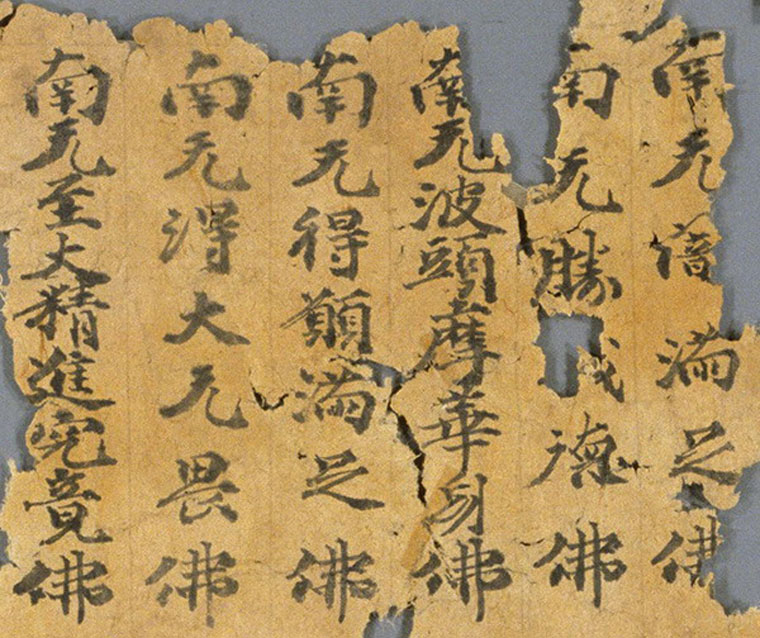 南无滿足佛
南无勝威德佛
南无波頭摩華身佛
南无得願滿足佛
南无得大无畏佛
南无至大精進究竟佛